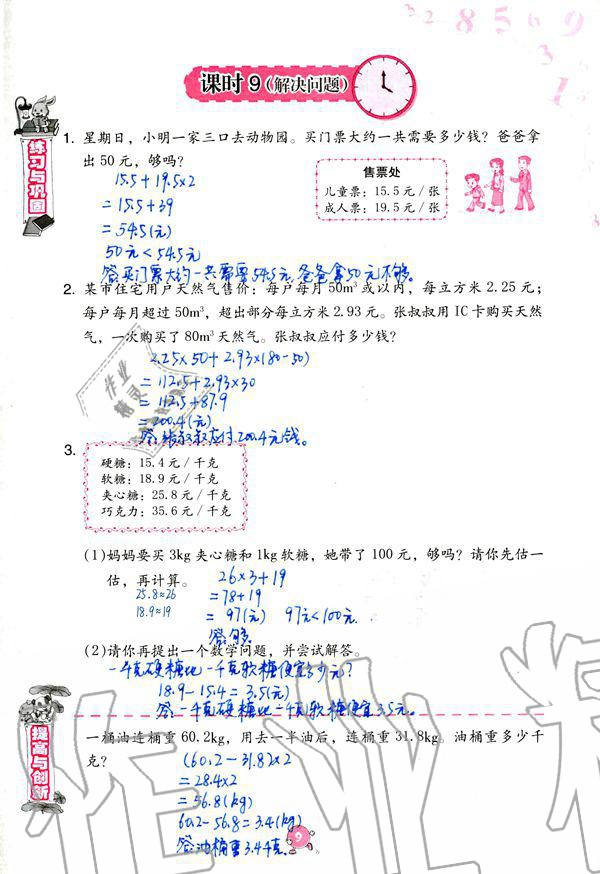 3 2 8 5 6 9
3
1
课时9（解决问题）
练习与巩固
1. 星期日，小明一家三口去动物园。买门票大约一共需要多少钱？爸爸拿
出50元，够吗？
售票处
儿童票：15.5元/张
成人票：19.5元/张
15.5+19.5×2
=15.5+39
=54.5(元)
50元<54.5元
答:买门票大约一共需要54.5元,爸爸拿50元不够。
2. 某市住宅用户天然气售价：每户每月50m³或以内，每立方米2.25元；
每户每月超过50m³，超出部分每立方米2.93元。张叔叔用IC卡购买天然
气，一次购买了80m³天然气。张叔叔应付多少钱？
2.25×50+2.93×(80-50)
=112.5+2.93×30
=112.5+87.9
=200.4(元)
答:张叔叔应付200.4元钱。
作业
精灵
3.
硬糖：15.4元/千克
软糖：18.9元/千克
夹心糖：25.8元/千克
巧克力：35.6元/千克
(1)妈妈要买3kg夹心糖和1kg软糖，她带了100元，够吗？请你先估一
估，再计算。
25.8≈26
18.9≈19
26×3+19
=78+19
=97(元) 97元<100元
答:够。
(2)请你再提出一个数学问题，并尝试解答。
一千克硬糖比一千克软糖便宜多少元?
18.9-15.4=3.5(元)
答:一千克硬糖比一千克软糖便宜3.5元。
提高与创新
一桶油连桶重60.2kg，用去一半油后，连桶重31.8kg。油桶重多少千
克？
(60.2-31.8)×2
=28.4×2
=56.8(kg)
60.2-56.8=3.4(kg)
答:油桶重3.4千克。
9
作业